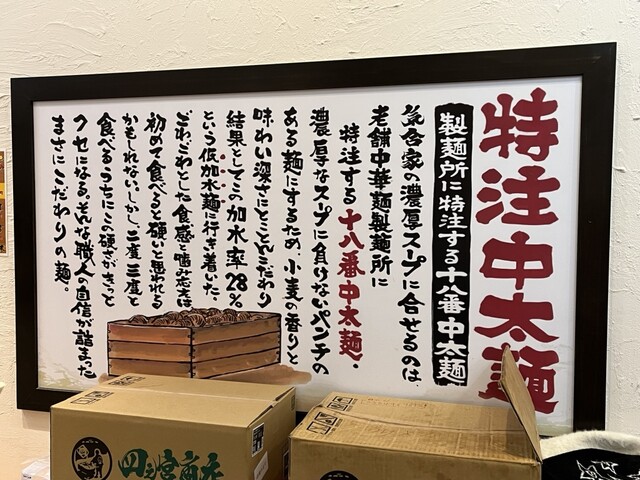 特注中太麺
製麺所に特注する十八番中太麺
気合家の濃厚スープに合せるのは、
老舗中華麺製麺所に
特注する十八番中太麺。
濃厚なスープに負けないパンチの
ある麺にするため、小麦の香りと
味わい深さにとことんこだわり
結果としてこの加水率28%
という低加水麺に行き着いた。
ごわごわとした食感と噛み応えは
初めて食べると硬いと思われる
かもしれない。しかし、二度三度と
食べるうちにこの硬さがきっと
クセになる。そんな職人の自信が詰まった
まさにこだわりの麺。